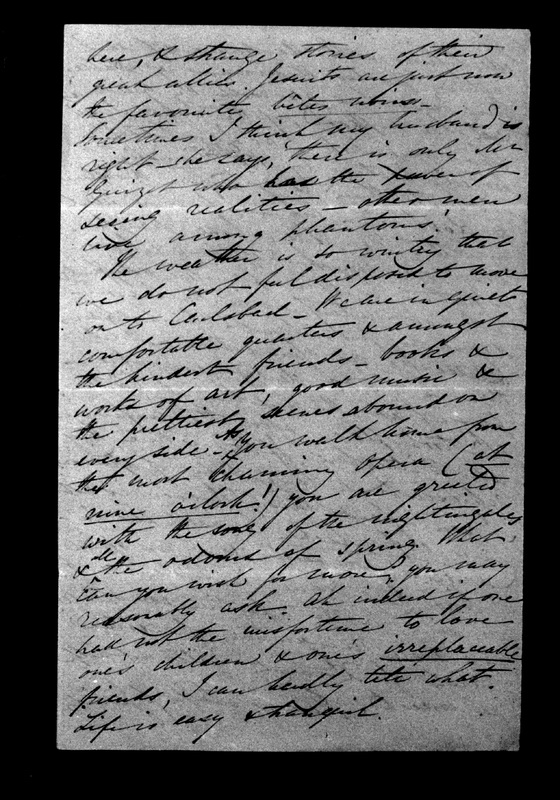 here, & strange stories of their
great allies. Jesuits are just now
the favourite bêtes noires -
Sometimes I think my husband is
right - he says, 'there is only Mr
Guizot who has the power of
seeing realities - other men
live among phantoms.'
The weather is so wintry that
we do not feel disposed to move
on to Carlsbad - We are in quiet
comfortable quarters & amongst
the kindest friends - books &
works of art, good music &
the prettiest scenes abound on
every side - As you walk home from
the most charming opera (at
nine o'clock!) you are greeted
with the song of the nightingales
& all the odours of spring. What
can you wish for more, you may
reasonably ask. Ah indeed if one
had not the misfortune to love
one's children & one's irreplaceable
friends, I can hardly tell what.
Life is easy & tranquil.